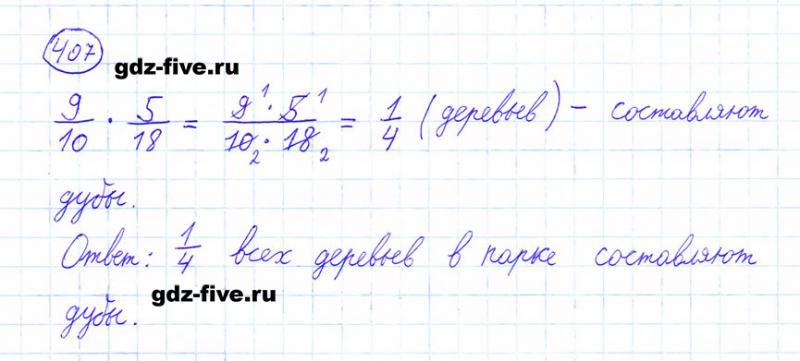 407
gdz-five.ru
9/10 · 5/18 = 9 1 · 5 1 / 10 2 · 18 2 = 1/4 (деревьев) – составляют
дубы.
Ответ: 1/4 всех деревьев в парке составляют
gdz-five.ru
дубы.